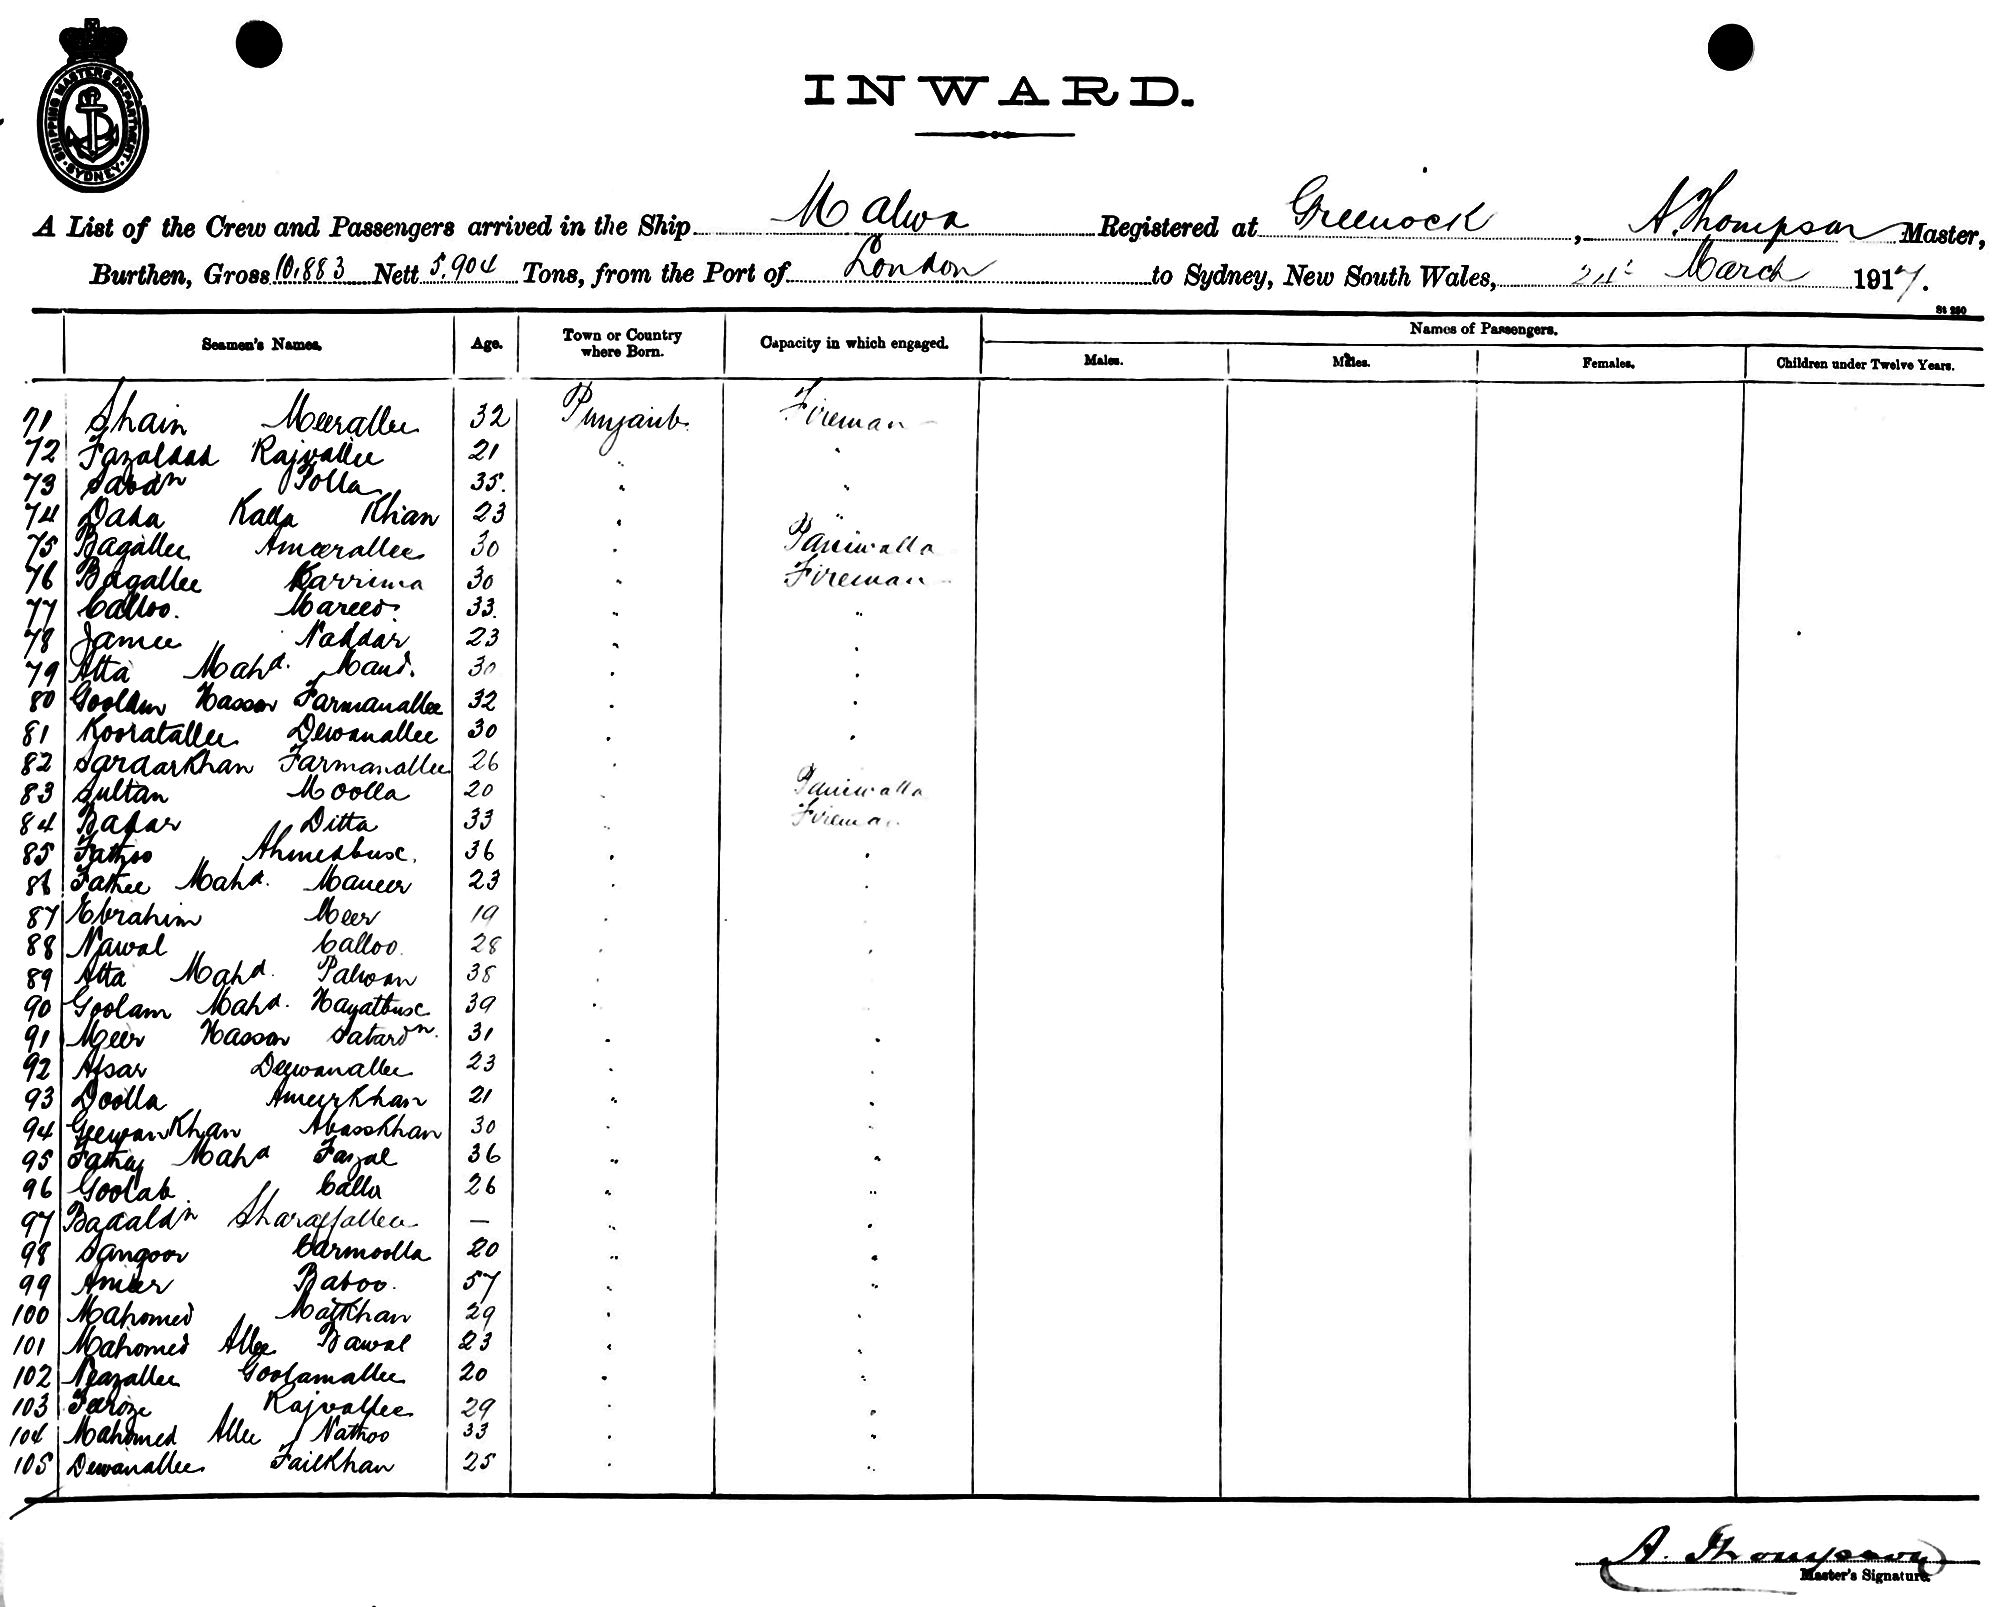 SHIPPING MASTERS DEPARTMENT · SYDNEY ·
INWARD.
A List of the Crew and Passengers arrived in the Ship Malwa Registered at Greenock, A. Thompson Master,
Burthen, Gross 10,883 Nett 5,904 Tons, from the Port of London to Sydney, New South Wales, March 1917.
St 280
Seamen's Names. Age. Town or Country where Born. Capacity in which engaged. Names of Passengers.
Males. Males. Females. Children under Twelve Years.
71 Shain Meerallee 32 Punjaub Fireman
72 Fazaldad Rajvallee 21 " "
73 Polla 35. " "
74 Dada Kalla Khan 23 " "
75 Bagallee Ameerallee 30 " Paniwalla
76 Bagallee Karrima 30 " Fireman
77 Calloo. 33. " "
78 Jamee Naddar 23 " "
79 Atta Mahd. 30 " "
80 Goolam Hasson Farmanallee 32 " "
81 Kooratallee Dewanallee 30 " "
82 SardarKhan Farmanallee 26 "
83 Sultan Moolla 20 " Paniwalla
84 Badar Ditta 33 " Fireman
85 Fattoo Ahmedbux. 36 " "
86 Fathee Mahd. Maneer 23 " "
87 Ebrahim Meer 19 " "
88 Nawal Calloo. 28 " "
89 Atta Mahd. Palwan 38 " "
90 Goolam Mahd. Hayatbux 39 "
91 Meer Hasson Satardn. 31 " "
92 Afsar Deewanallee 23 " "
93 Doolla AmeerKhan 21 " "
94 GeewanKhan AbassKhan 30 " "
95 Fathey Mahd Fazal 36 " "
96 Goolab Calla 26 " "
97 Badaldn Sharaffallee — " "
98 Sangoor Carmoolla 20 " "
99 Ameer Baboo. 57 " "
100 Mahomed MatKhan 29 " "
101 Mahomed Allee Bawal 23 " "
102 Neazallee Goolamallee 20 " "
103 Feeroze Rajvallee 29 " "
104 Mahomed Allee Nathoo 33 " "
105 Dewanallee FailKhan 25 " "
A. Thompson
Master's Signature.